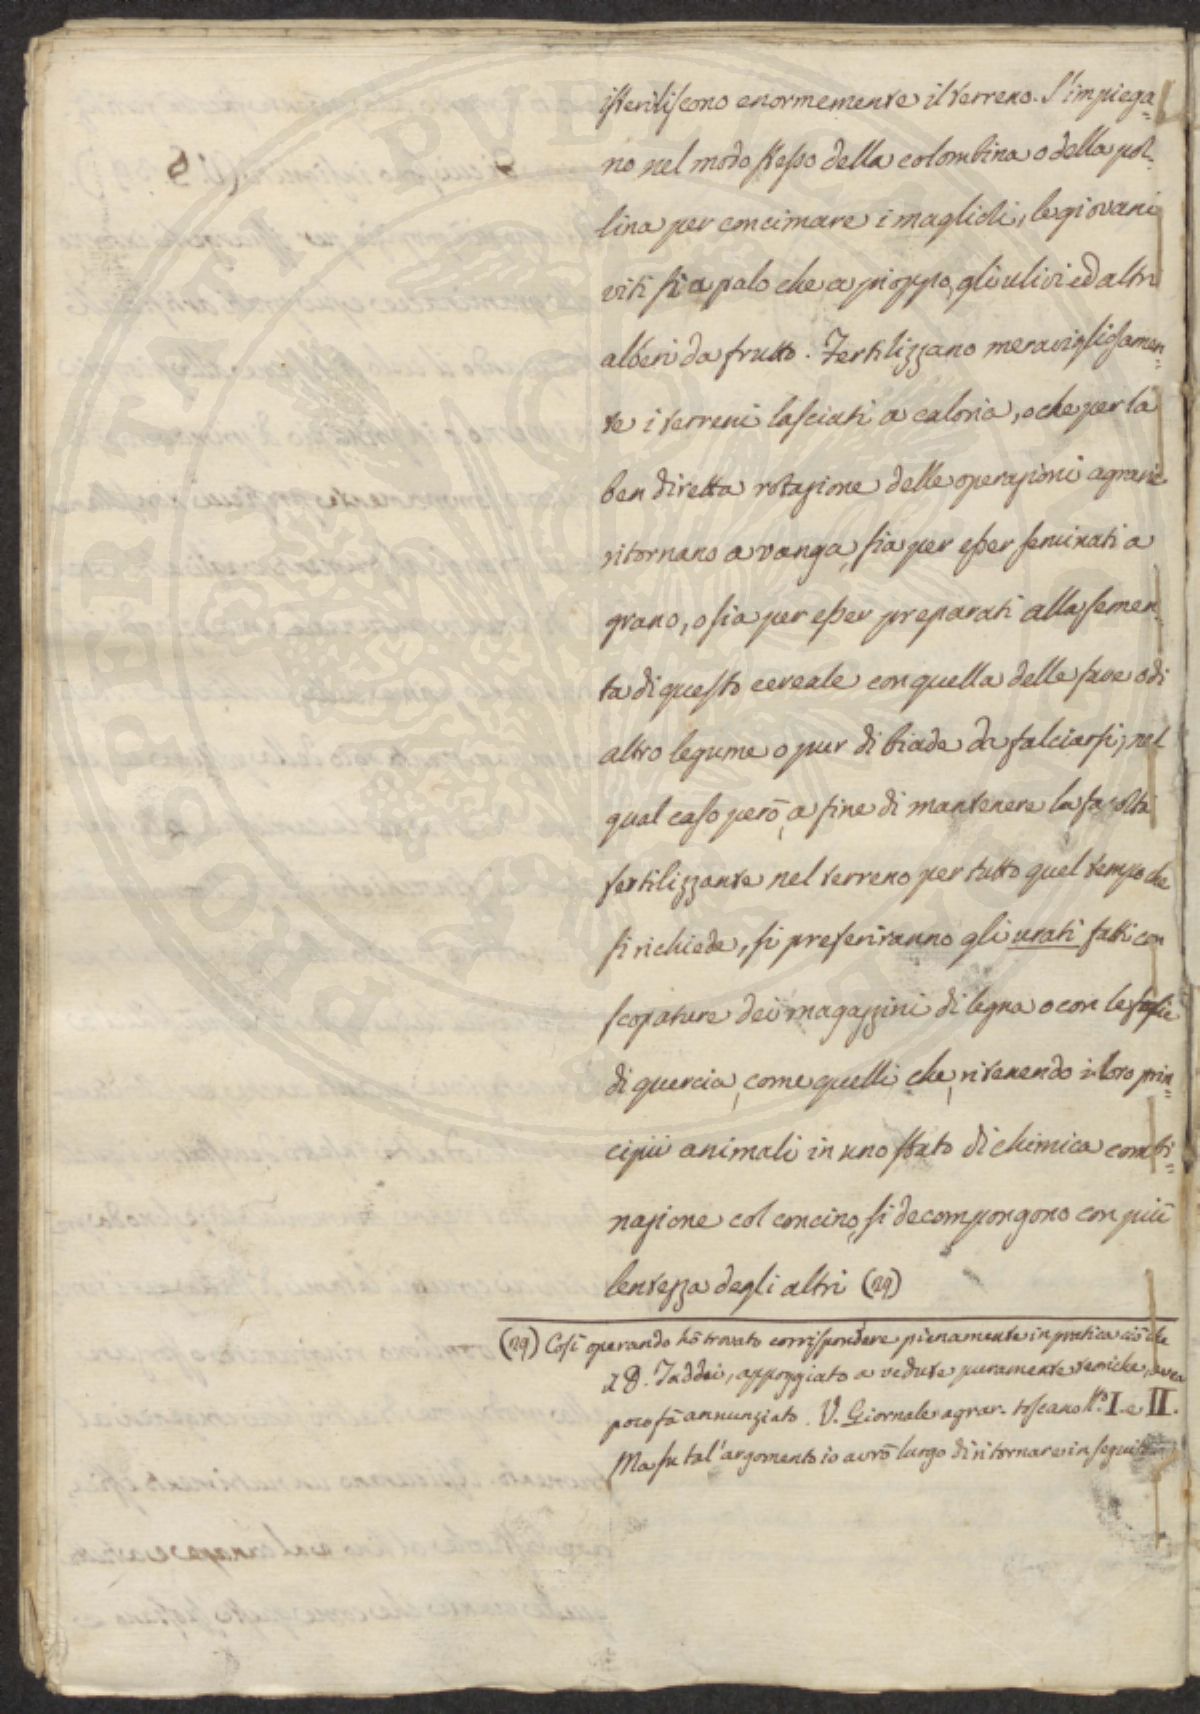 isteriliscono enormemente il terreno. S'impiega=
no nel modo stesso della colombina o della pol=
lina per concimare i maglioli, le giovani
viti sia a palo che a pioppo, gli ulivi ed altri
alberi da frutto. Fertilizzano meravigliosamen=
te i terreni lasciati a caloria, o che per la
ben diretta rotazione delle operazioni agrarie
ritornano a vanga, sia per esser seminati a
grano, o sia per esser preparati alla semen=
ta di questo cereale con quella delle fave o di
altro legume o pur di biade da falciarsi; nel
qual caso però, a fine di mantenere la facoltà
fertilizzante nel terreno per tutto quel tempo che
si richiede, si preferiranno gli urati fatti con
scopature dei magazzini di legna o con le foglie
di quercia, come quelli che, ritenendo i loro prin=
cipii animali in uno stato di chimica combi=
nazione col concino, si decompongono con più
lentezza degli altri (29)
(29) Così operando hò trovato corrispondere pienamente in pratica ciò che
il D. Taddei, appoggiato a vedute puramente teoriche, avea
poco fà annunziato. V. Giornale agrar. toscano N.º I. e II.
Ma su tal' argomento io avrò luogo di ritornare in seguito
PVBLICI
PROSPERITATI